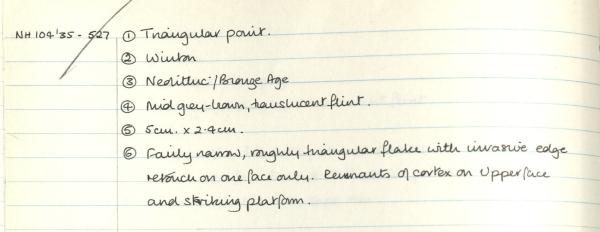 NH 104'35 - 527 ① Triangular point.
② Winton
③ Neolithic/Bronze Age
④ Mid grey-brown, translucent flint.
⑤ 5cm. x 2.4cm.
⑥ Fairly narrow, roughly triangular flake with invasive edge
retouch on one face only. Remnants of cortex on Upper face
and striking platform.